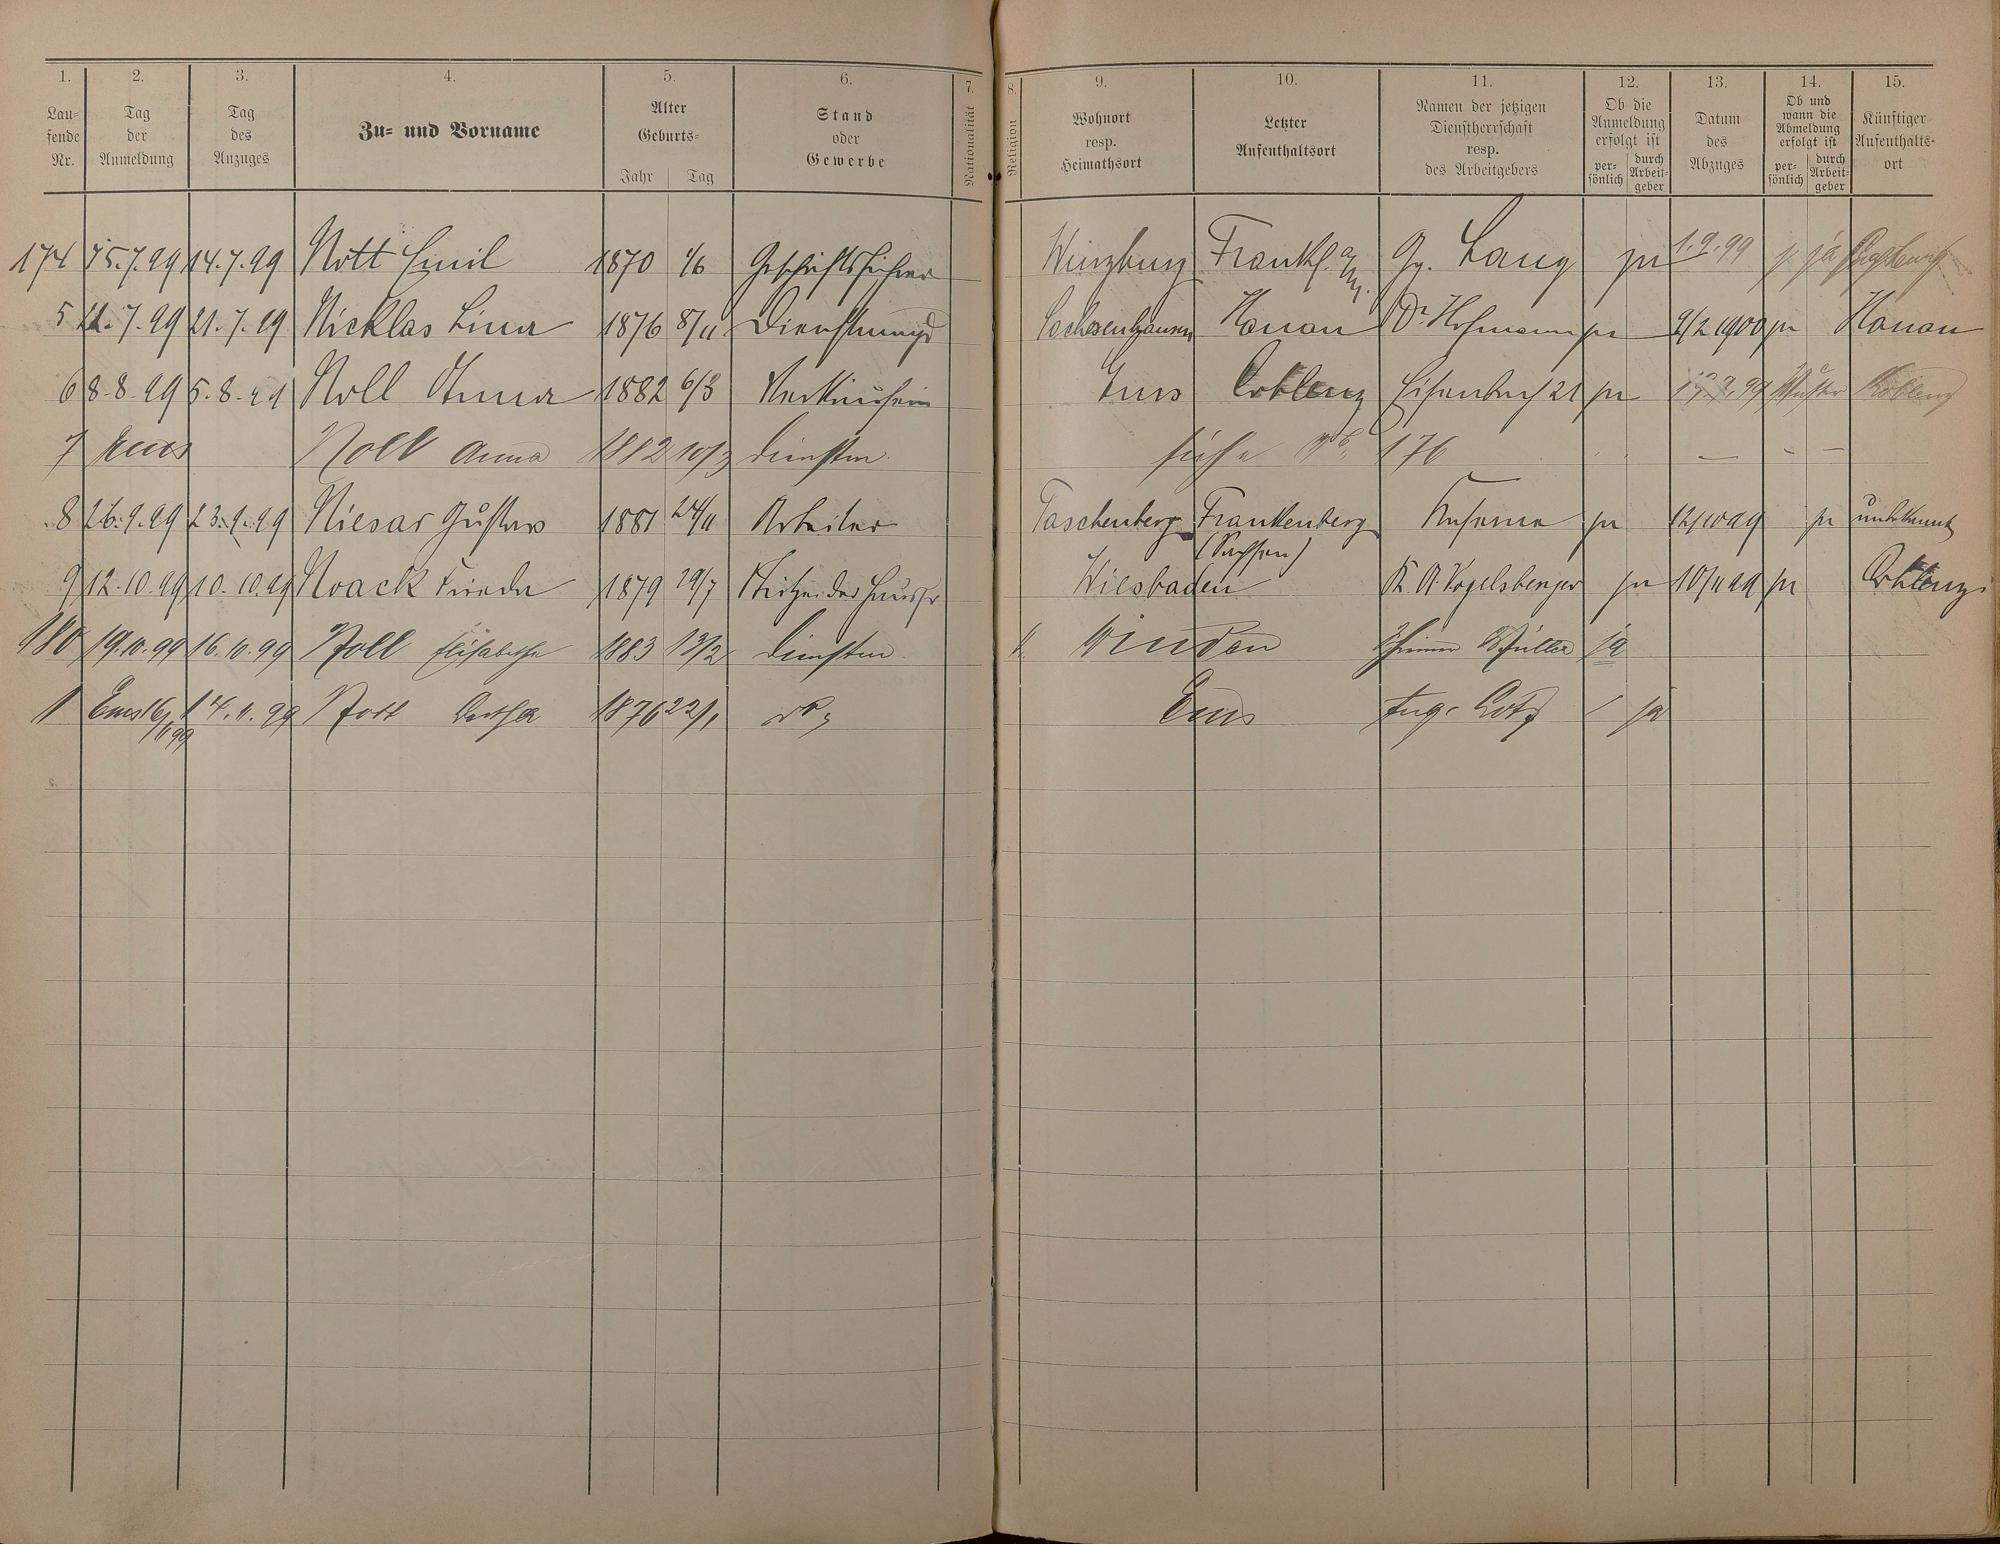 1. 2. 3. 4. 5. 6. 7. 8. 9. 10. 11. 12. 13. 14. 15.
Lau-
fende
Nr.
Tag
der
Anmeldung
Tag
des
Anzuges
Zu= und Vorname
Alter
Geburts=
Jahr Tag
Stand
oder
Gewerbe
Nationalität
Religion
Wohnort
resp.
Heimathsort
Letzter
Aufenthaltsort
Namen der jetzigen
Dienstherrschaft
resp.
des Arbeitgebers
Ob die
Anmeldung
erfolgt ist
per-
sönlich
durch
Arbeit-
geber
Datum
des
Abzuges
Ob und
wann die
Abmeldung
erfolgt ist
per-
sönlich
durch
Arbeit-
geber
Künftiger
Aufenthalts-
ort
174 15.7.99 14.7.99 Nott Emil 1870 1/6 Geschäftsführer Frankf. a/M. Gg. Lang 1.9.99 ja
5 21.7.99 Nicklas Lina 1876 8/11 Dienstmagd Sachsenhausen Hanau Dr Hofmann 9/2 1900 Hanau
6 8.8.99 5.8.99 Noll Anna 1882 6/3 Verkäuferin Ems Coblenz Coblenz
7 Ems Noll Anna 1882 10/3 Dienstm. siehe No 176
8 26.9.99 23.9.99 Niesar Gustav 1881 24/11 Arbeiter Taschenberg Frankenberg (Sachsen) 12/10 99 unbekannt
9 12.10.99 10.10.99 Noack Frieda 1879 29/7 Stütze der Hausfr. Wiesbaden Vogelsberger 10/11 99 Coblenz
180 19.10.99 16.10.99 Noll Elisabethe 1883 13/2 Dienstm Winden ja
1 Ems 16/11 99 14.11.99 1876 22/1 do Ems ja